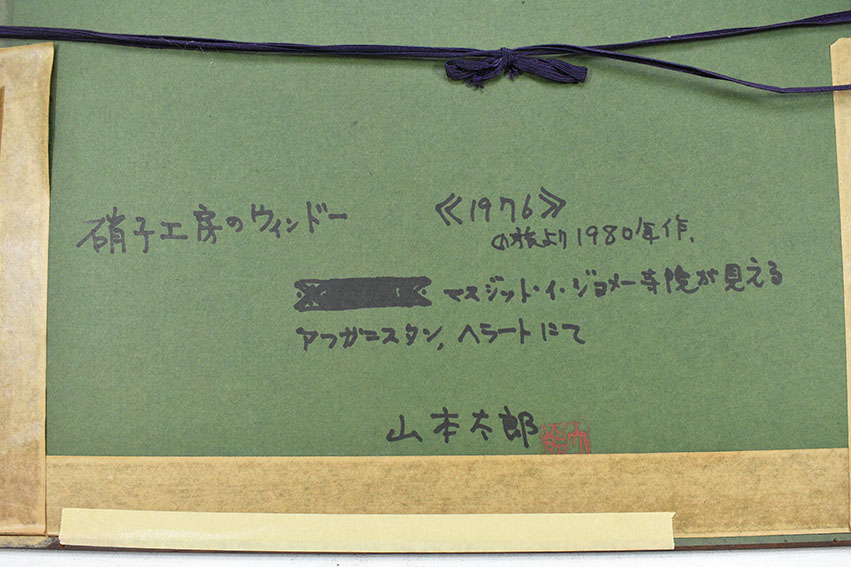 硝子工房のウィンドー
≪1976≫
の旅より1980年作.
マスジット・イ・ジョメー寺院が見える
アフガニスタン, ヘラートにて
山本太郎